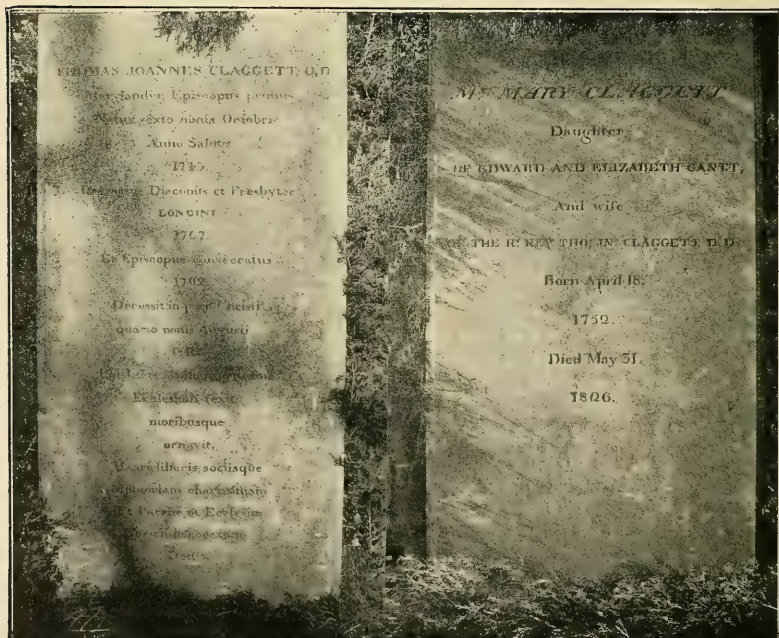 THOMAS JOANNES CLAGGETT, D.D
Episcopus primus
Natus sexto nonis Octobris
Anno Salutis
Diaconus et Presbyter
LONDINI
1767.
Et Episcopus consecratus
1792
Decessit in pace Christi
quarto nonis Augusti
Ecclesiam rexit
moribusque
ornavit.
Uxori liberis sociisque
Memoriam charissimam
Et Patriae et Ecclesiae
Mrs MARY CLAGGETT
Daughter
OF EDWARD AND ELIZABETH GANTT,
And wife
OF THE Rt REV THOs JNo CLAGGETT D.D
Born April 18.
1752.
Died May 31.
1826.